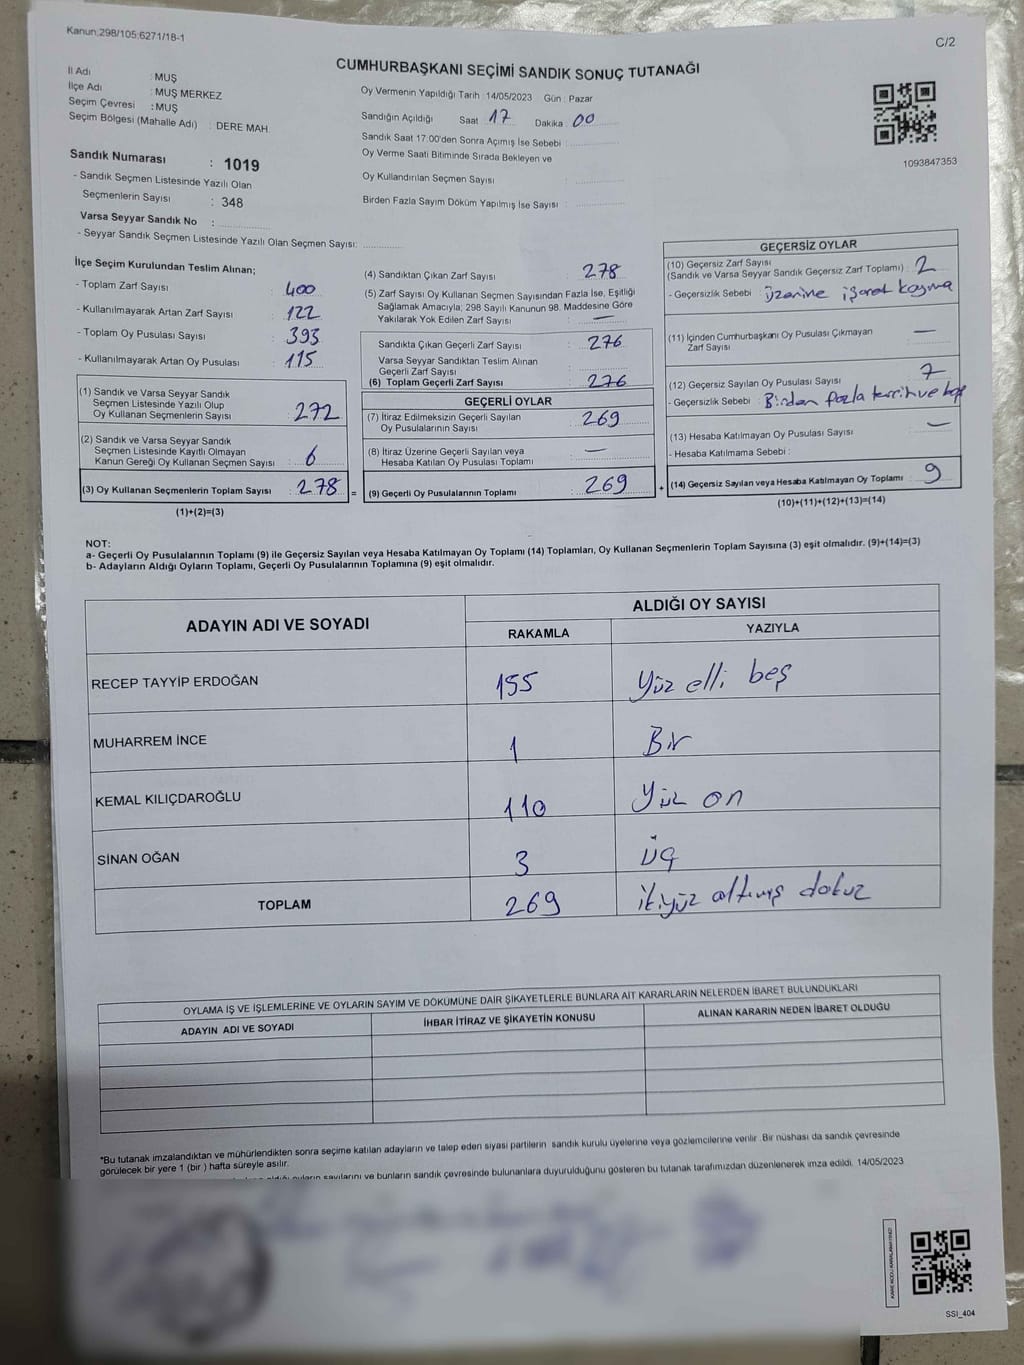 Kanun:298/105;6271/18-1
C/2
CUMHURBAŞKANI SEÇİMİ SANDIK SONUÇ TUTANAĞI
İl Adı : MUŞ
İlçe Adı : MUŞ MERKEZ
Seçim Çevresi : MUŞ
Seçim Bölgesi (Mahalle Adı) : DERE MAH.
Sandık Numarası : 1019
- Sandık Seçmen Listesinde Yazılı Olan
Seçmenlerin Sayısı : 348
Varsa Seyyar Sandık No :
- Seyyar Sandık Seçmen Listesinde Yazılı Olan Seçmen Sayısı:
Oy Vermenin Yapıldığı Tarih : 14/05/2023 Gün : Pazar
Sandığın Açıldığı Saat 17 Dakika 00
Sandık Saat 17:00'den Sonra Açımış İse Sebebi :
Oy Verme Saati Bitiminde Sırada Bekleyen ve
Oy Kullandırılan Seçmen Sayısı :
Birden Fazla Sayım Döküm Yapılmış İse Sayısı :
1093847353
İlçe Seçim Kurulundan Teslim Alınan;
- Toplam Zarf Sayısı : 400
- Kullanılmayarak Artan Zarf Sayısı : 122
- Toplam Oy Pusulası Sayısı : 393
- Kullanılmayarak Artan Oy Pusulası : 115
(1) Sandık ve Varsa Seyyar Sandık
Seçmen Listesinde Yazılı Olup
Oy Kullanan Seçmenlerin Sayısı : 272
(2) Sandık ve Varsa Seyyar Sandık
Seçmen Listesinde Kayıtlı Olmayan
Kanun Gereği Oy Kullanan Seçmen Sayısı : 6
(3) Oy Kullanan Seçmenlerin Toplam Sayısı : 278 =
(1)+(2)=(3)
(4) Sandıktan Çıkan Zarf Sayısı : 278
(5) Zarf Sayısı Oy Kullanan Seçmen Sayısından Fazla İse, Eşitliği
Sağlamak Amacıyla; 298 Sayılı Kanunun 98. Maddesine Göre
Yakılarak Yok Edilen Zarf Sayısı : —
Sandıkta Çıkan Geçerli Zarf Sayısı : 276
Varsa Seyyar Sandıktan Teslim Alınan
Geçerli Zarf Sayısı :
(6) Toplam Geçerli Zarf Sayısı : 276
GEÇERLİ OYLAR
(7) İtiraz Edilmeksizin Geçerli Sayılan
Oy Pusulalarının Sayısı : 269
(8) İtiraz Üzerine Geçerli Sayılan veya
Hesaba Katılan Oy Pusulası Toplamı : —
(9) Geçerli Oy Pusulalarının Toplamı : 269 +
GEÇERSİZ OYLAR
(10) Geçersiz Zarf Sayısı
(Sandık ve Varsa Seyyar Sandık Geçersiz Zarf Toplamı) : 2
- Geçersizlik Sebebi : Üzerine işaret koyma
(11) İçinden Cumhurbaşkanı Oy Pusulası Çıkmayan
Zarf Sayısı : —
(12) Geçersiz Sayılan Oy Pusulası Sayısı : 7
- Geçersizlik Sebebi : Birden fazla tercih ve boş
(13) Hesaba Katılmayan Oy Pusulası Sayısı : —
- Hesaba Katılmama Sebebi :
(14) Geçersiz Sayılan veya Hesaba Katılmayan Oy Toplamı : 9
(10)+(11)+(12)+(13)=(14)
NOT:
a- Geçerli Oy Pusulalarının Toplamı (9) ile Geçersiz Sayılan veya Hesaba Katılmayan Oy Toplamı (14) Toplamları, Oy Kullanan Seçmenlerin Toplam Sayısına (3) eşit olmalıdır. (9)+(14)=(3)
b- Adayların Aldığı Oyların Toplamı, Geçerli Oy Pusulalarının Toplamına (9) eşit olmalıdır.
ADAYIN ADI VE SOYADI ALDIĞI OY SAYISI
RAKAMLA YAZIYLA
RECEP TAYYİP ERDOĞAN 155 Yüz elli beş
MUHARREM İNCE 1 Bir
KEMAL KILIÇDAROĞLU 110 Yüz on
SİNAN OĞAN 3 üç
TOPLAM 269 ikiyüz altmış dokuz
OYLAMA İŞ VE İŞLEMLERİNE VE OYLARIN SAYIM VE DÖKÜMÜNE DAİR ŞİKAYETLERLE BUNLARA AİT KARARLARIN NELERDEN İBARET BULUNDUKLARI
ADAYIN ADI VE SOYADI İHBAR İTİRAZ VE ŞİKAYETİN KONUSU ALINAN KARARIN NEDEN İBARET OLDUĞU
*Bu tutanak imzalandıktan ve mühürlendikten sonra seçime katılan adayların ve talep eden siyasi partilerin sandık kurulu üyelerine veya gözlemcilerine verilir. Bir nüshası da sandık çevresinde
görülecek bir yere 1 (bir ) hafta süreyle asılır.
oyların sayılarını ve bunların sandık çevresinde bulunanlara duyurulduğunu gösteren bu tutanak tarafımızdan düzenlenerek imza edildi. 14/05/2023
SSI_404